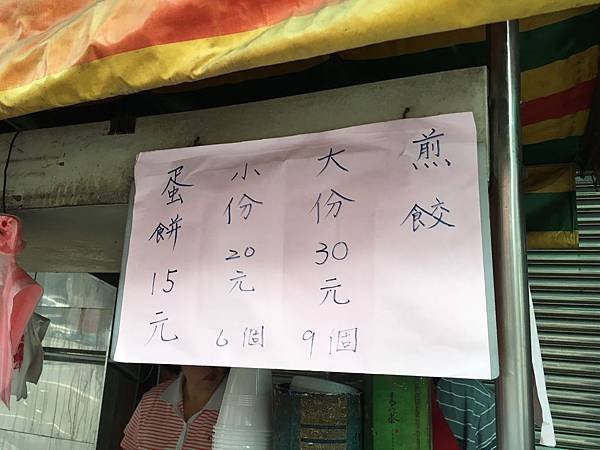 煎餃
大份30元9個
小份20元6個
蛋餅15元